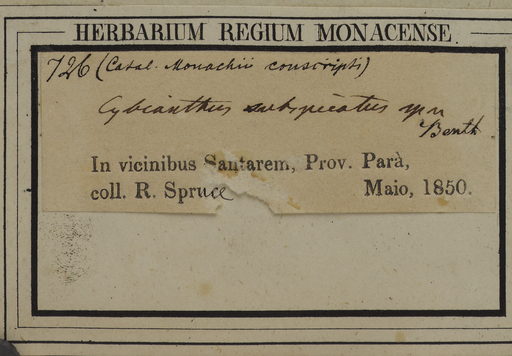 HERBARIUM REGIUM MONACENSE.
726 (Catal. Monachii conscripti)
Cybianthus subspicatus sp n
Benth
In vicinibus Santarem, Prov. Parà,
coll. R. Spruce Maio, 1850.